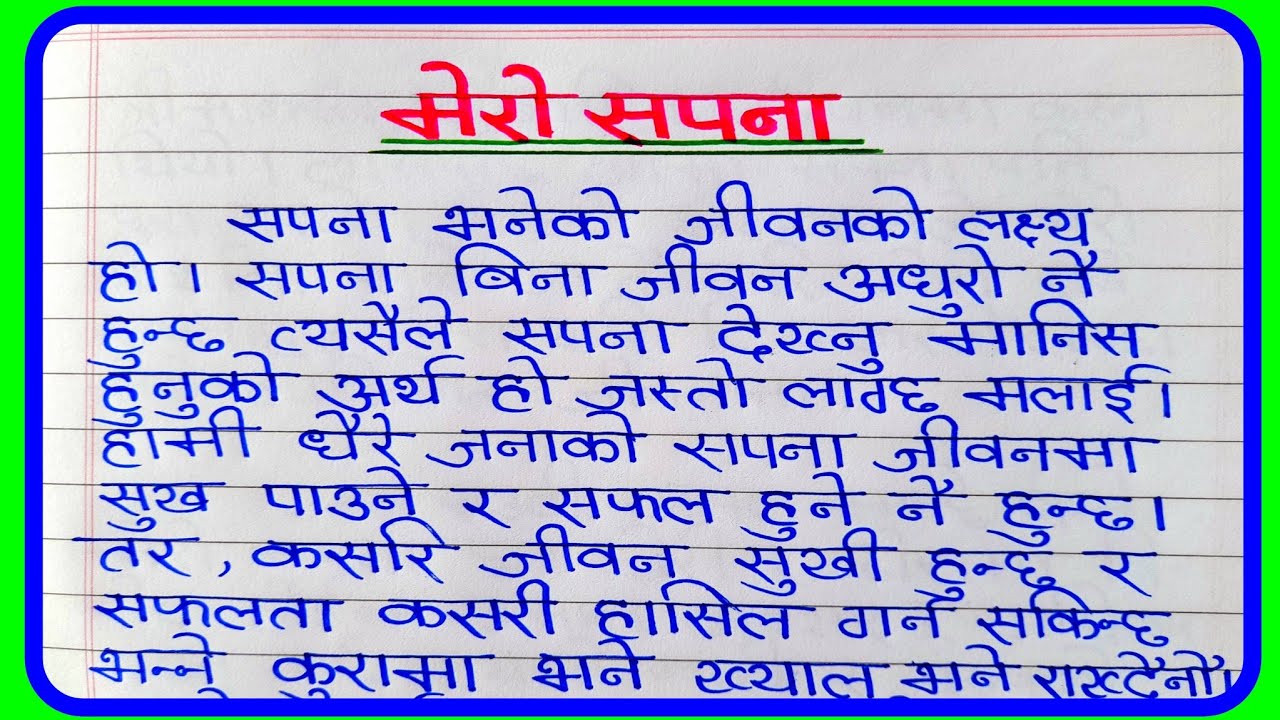 मेरो सपना
सपना भनेको जीवनको लक्ष्य
हो। सपना बिना जीवन अधुरो नै
हुन्छ त्यसैले सपना देख्नु मानिस
हुनुको अर्थ हो जस्तो लाग्छ मलाई।
हामी धेरै जनाको सपना जीवनमा
सुख पाउने र सफल हुने नै हुन्छ।
तर, कसरि जीवन सुखी हुन्छ र
सफलता कसरी हासिल गर्न सकिन्छ
भन्ने कुरामा भने ख्याल भने राख्दैनौं।